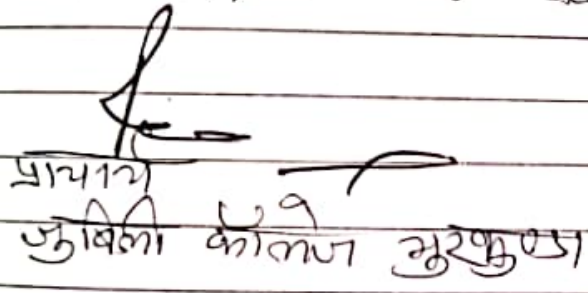 प्राचार्य
जुबिली कॉलेज भुरकुण्डा